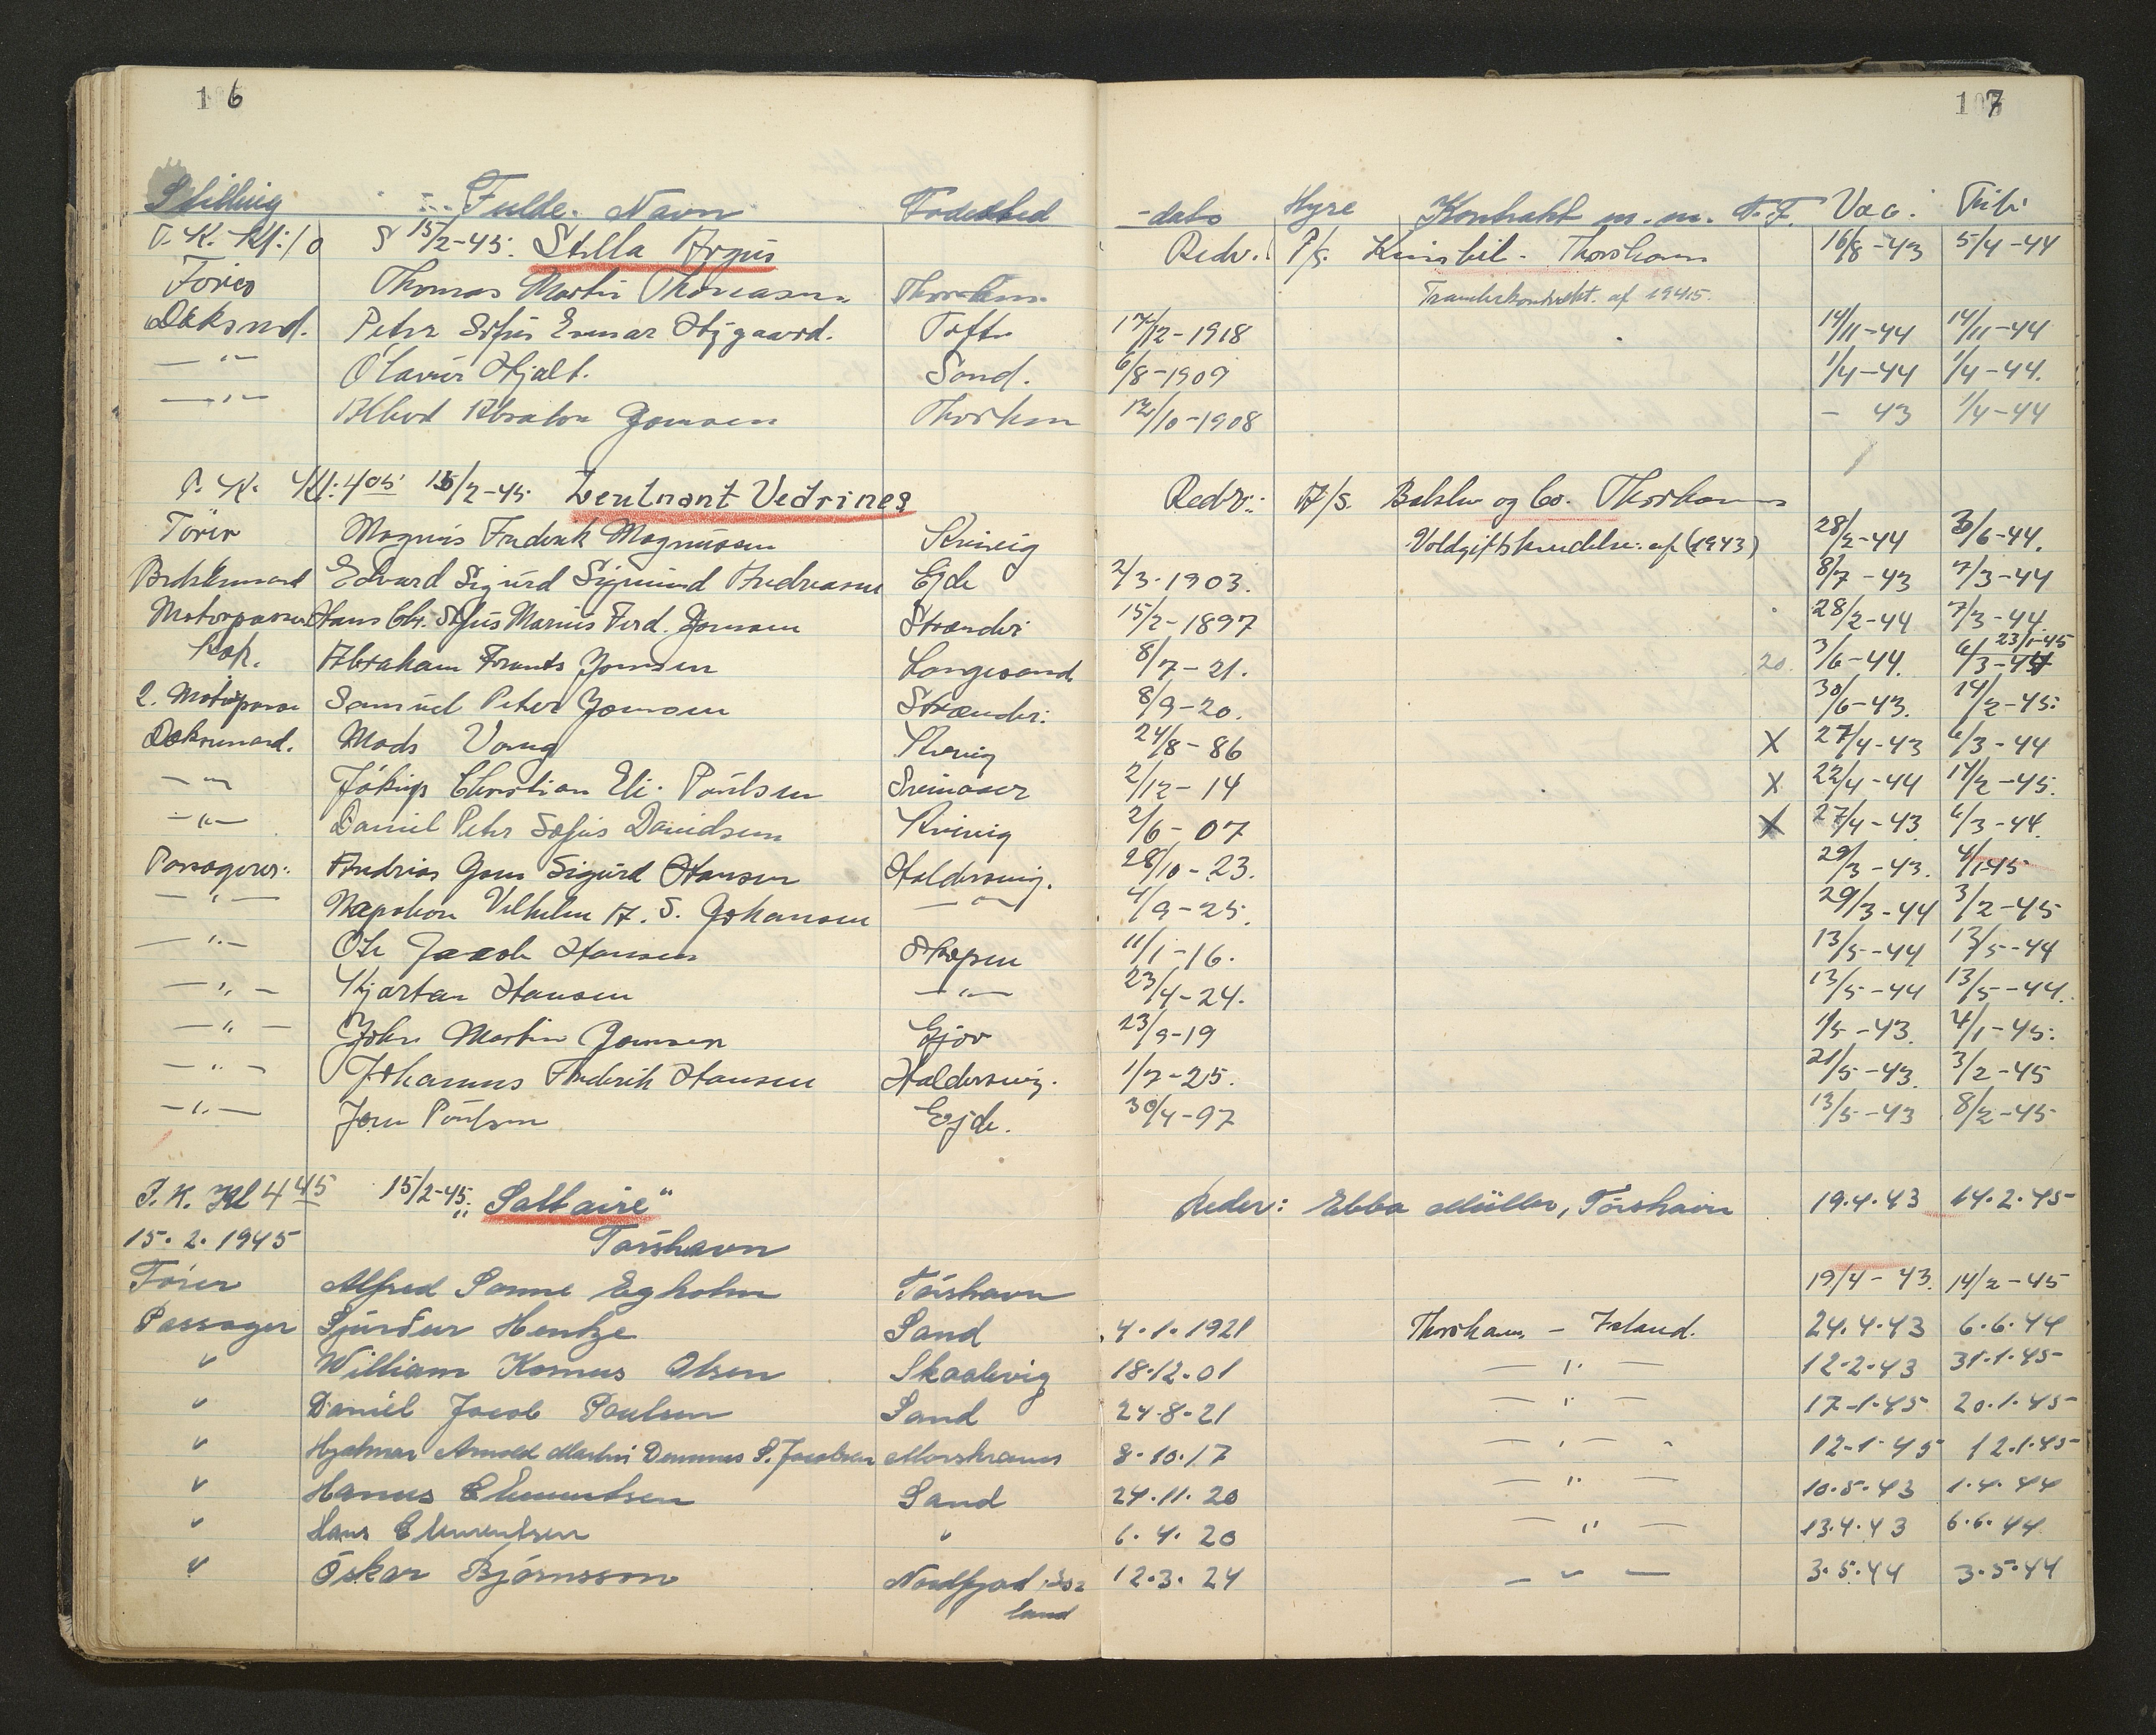 16
107
Stilling Fulde Navn Fødested -dato Hyre Kontrakt m.m. Vac. Trib.
15/2-45. Stella Argus Redr. P/s. Thorshavn 16/8-43 5/4-44
Fører Thomas Martin Thomasen Thorshavn af 1941.
Deksmd. Peter Sofus Enmar Højgaard. Tofte 17/12-1918 14/11-44 14/11-44
— " — Olavur Hjalt. Sand. 6/8-1909 1/4-44 1/4-44.
— " — Abraham Joensen Thorshavn 12/10-1908 - 43 1/4-44
P. K. Kl: 4 05 15/2-45. Leutnant Vedrines Redr: A/S. og Co. Thorshavn
Fører Magnus Frederik Magnussen Kvivig Voldgiftskendelse af (1943) 28/2-44 30/6-44.
Bedstemand Edvard Sigurd Sigmund Andreasen Ejde 2/3-1903. 8/7-43 7/3-44
Motorpasser Hans Chr. Sofus Marius Ferd. Joensen Strænder 15/2-1897 28/2-44 7/3-44
Kok. Abraham Frants Joensen Langesand 8/7-21. 20. 3/6-44. 6/3-44 23/1-45
2. Motorpasser Samuel Peter Joensen Strænder. 8/9-20. 30/6-43. 14/2-45.
Deksmand. Mads Vang Kvivig 24/8-86 X 27/4-43 6/3-44
— " — Jákup Christian Eli. Poulsen 2/12-14 X 22/4-44 14/2-45.
— " — Daniel Peter Sofus Davidsen Kvivig 2/6-07 X 27/4-43 6/3-44.
Passagerer: Andrias Jens Sigurd Hansen Haldersvig. 28/10-23. 29/3-43. 4/1-45
— " — Napoleon Vilhelm A. S. Johansen — " — 4/9-25. 29/3-44 3/2-45
— " — Ole Jacob Hansen Skopen 11/1-16. 13/5-44 13/5-44
— " — Kjartan Hansen — " — 23/4-24. 13/5-44 13/5-44.
— " — John Martin Joensen Gjov 23/9-19 1/5-43. 4/1-45.
— " — Johannes Frederik Hansen Haldersvig. 1/7-25. 21/5-43. 3/2-45
— " — Joen Poulsen Ejde. 30/4-97 13/5-43 8/2-45
P. K. Kl 4 45 15/2-45. „Saltaire" Reder: Ebba Müller, Tórshavn 19.4.43 14.2.45
15.2.1945 Tórshavn
Fører Alfred Sonne Egholm Tórshavn 19/4-43. 14/2-45
Passager Sjúrður Hentze Sand 4.1.1921 Thorshavn - Island. 24.4.43 6.6.44
" William Komus Olsen Skaalevig 18.12.01 — " — 12.2.43 31.1.45
" Daniel Jacob Poulsen Sand 24.8.21 — " — 17-1-45 20.1.45
" Hjalmar Arnold Martin Demmus S. Jacobsen Morskranes 8.10.17 — " — 12-1-45 12.1.45
" Hanus Clementsen Sand 24.11.20 — " — 10.5.43 1.4.44
" Hans Clementsen " 6.4.20 — " — 13.4.43 6.6.44
" Óskar Björnsson Nordfjord Is= 12.3.24 — " — 3.5.44 3.5.44
land